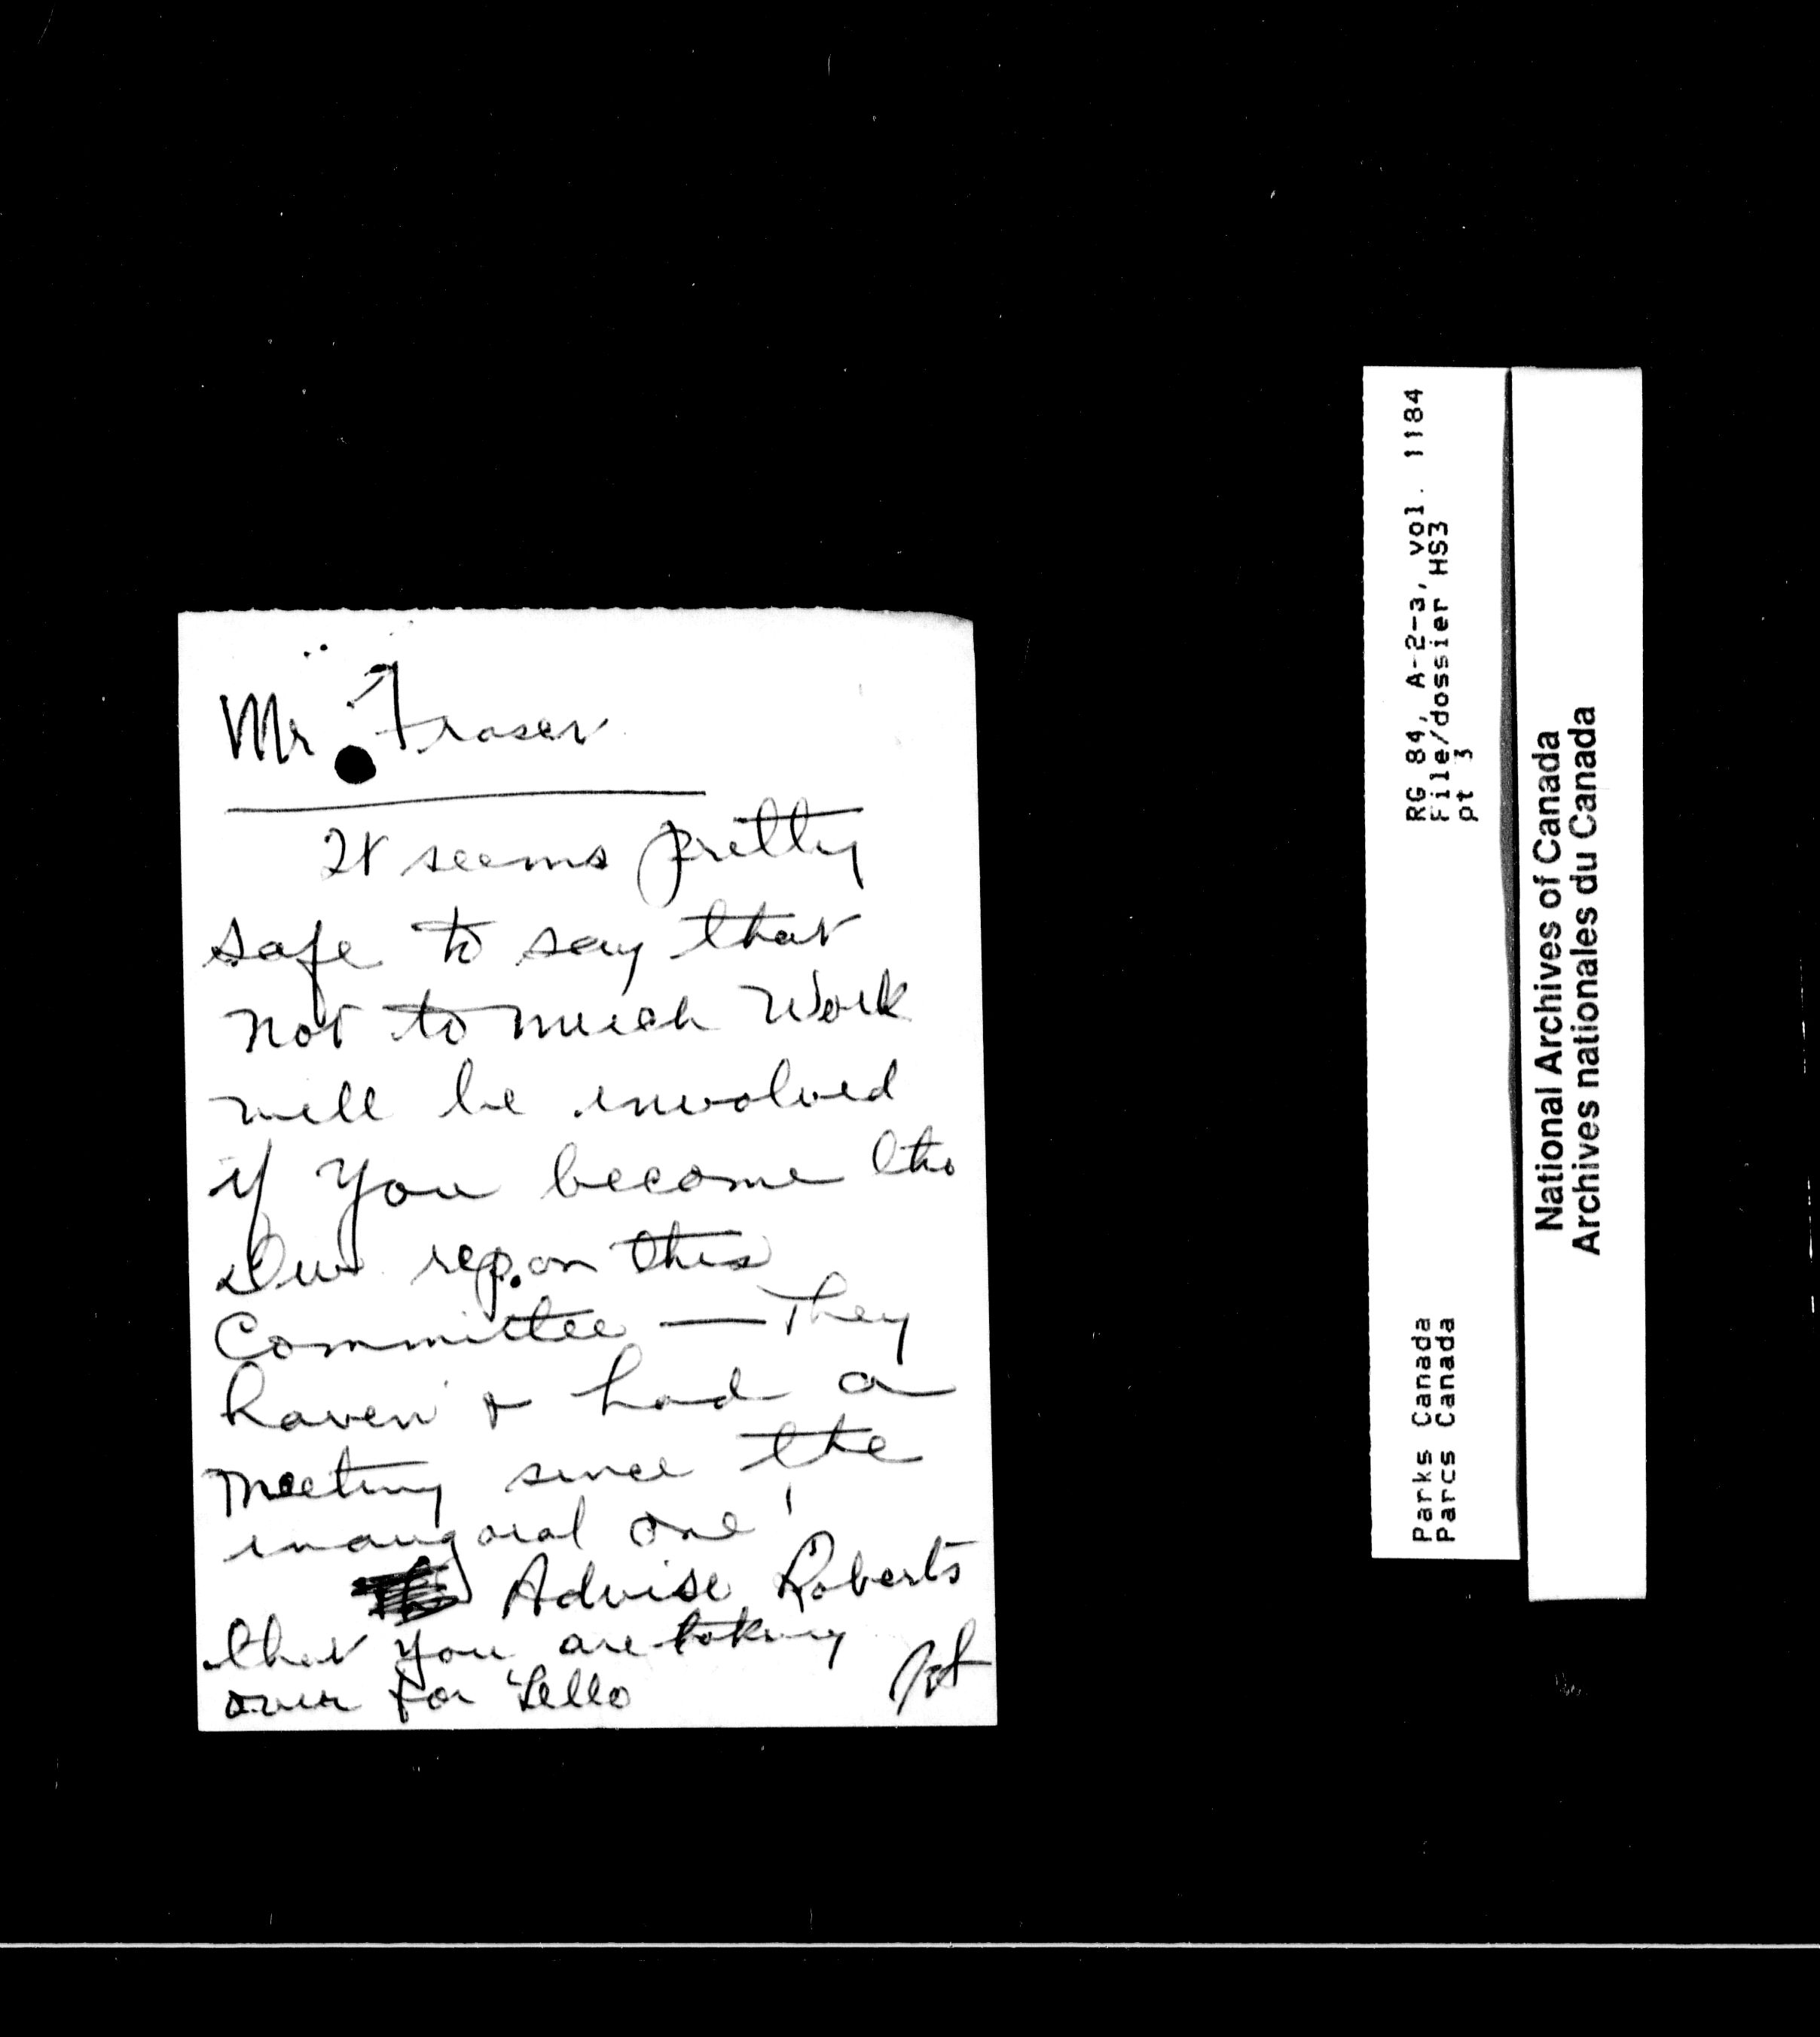 Mr. Fraser
It seems pretty
safe to say that
not to much work
will be involved
if you become the
Div rep. on this
Committee — They
haven't had a
meeting since the
inaugural one!
Advise Roberts
that you are taking
over for Lello
RG 84, A-2-a, vol. 1184
File/dossier HS3
pt 3
Parks Canada
Parcs Canada
National Archives of Canada
Archives nationales du Canada